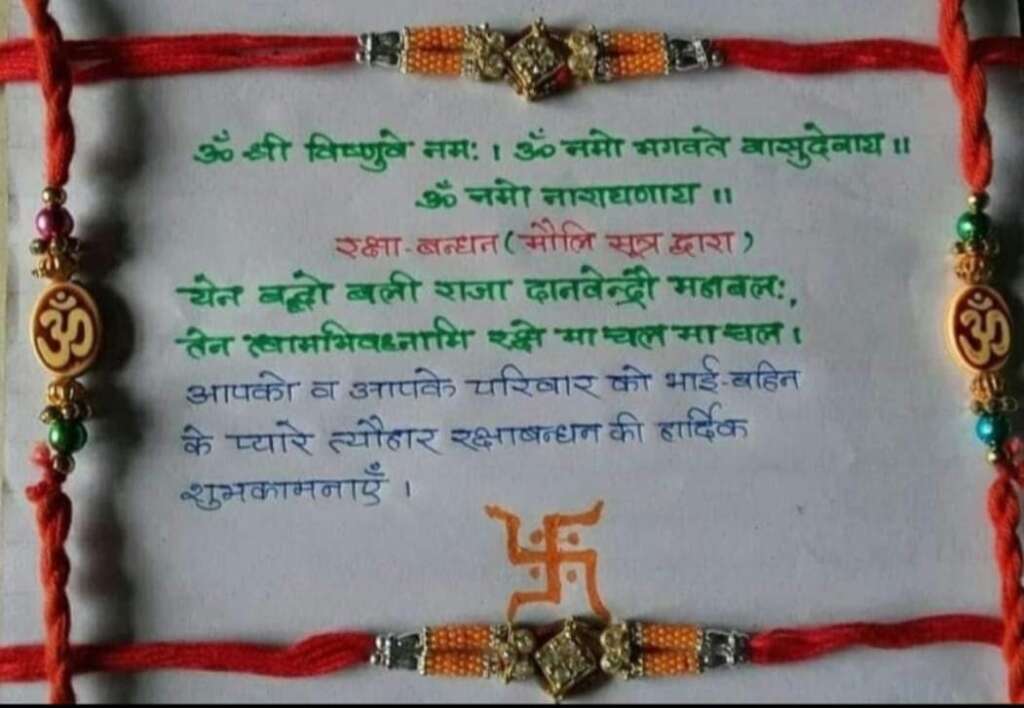 ॐ श्री विष्णुवे नमः। ॐ नमो भगवते वासुदेवाय॥
ॐ नमो नारायणाय॥
रक्षा-बन्धन (मौलि सूत्र द्वारा)
येन बद्धो बली राजा दानवेन्द्रो महाबलः,
तेन त्वामभिवध्नामि रक्षे मा चल मा चल।
आपको व आपके परिवार को भाई-बहिन
के प्यारे त्यौहार रक्षाबन्धन की हार्दिक
शुभकामनाएँ।
ॐ
ॐ